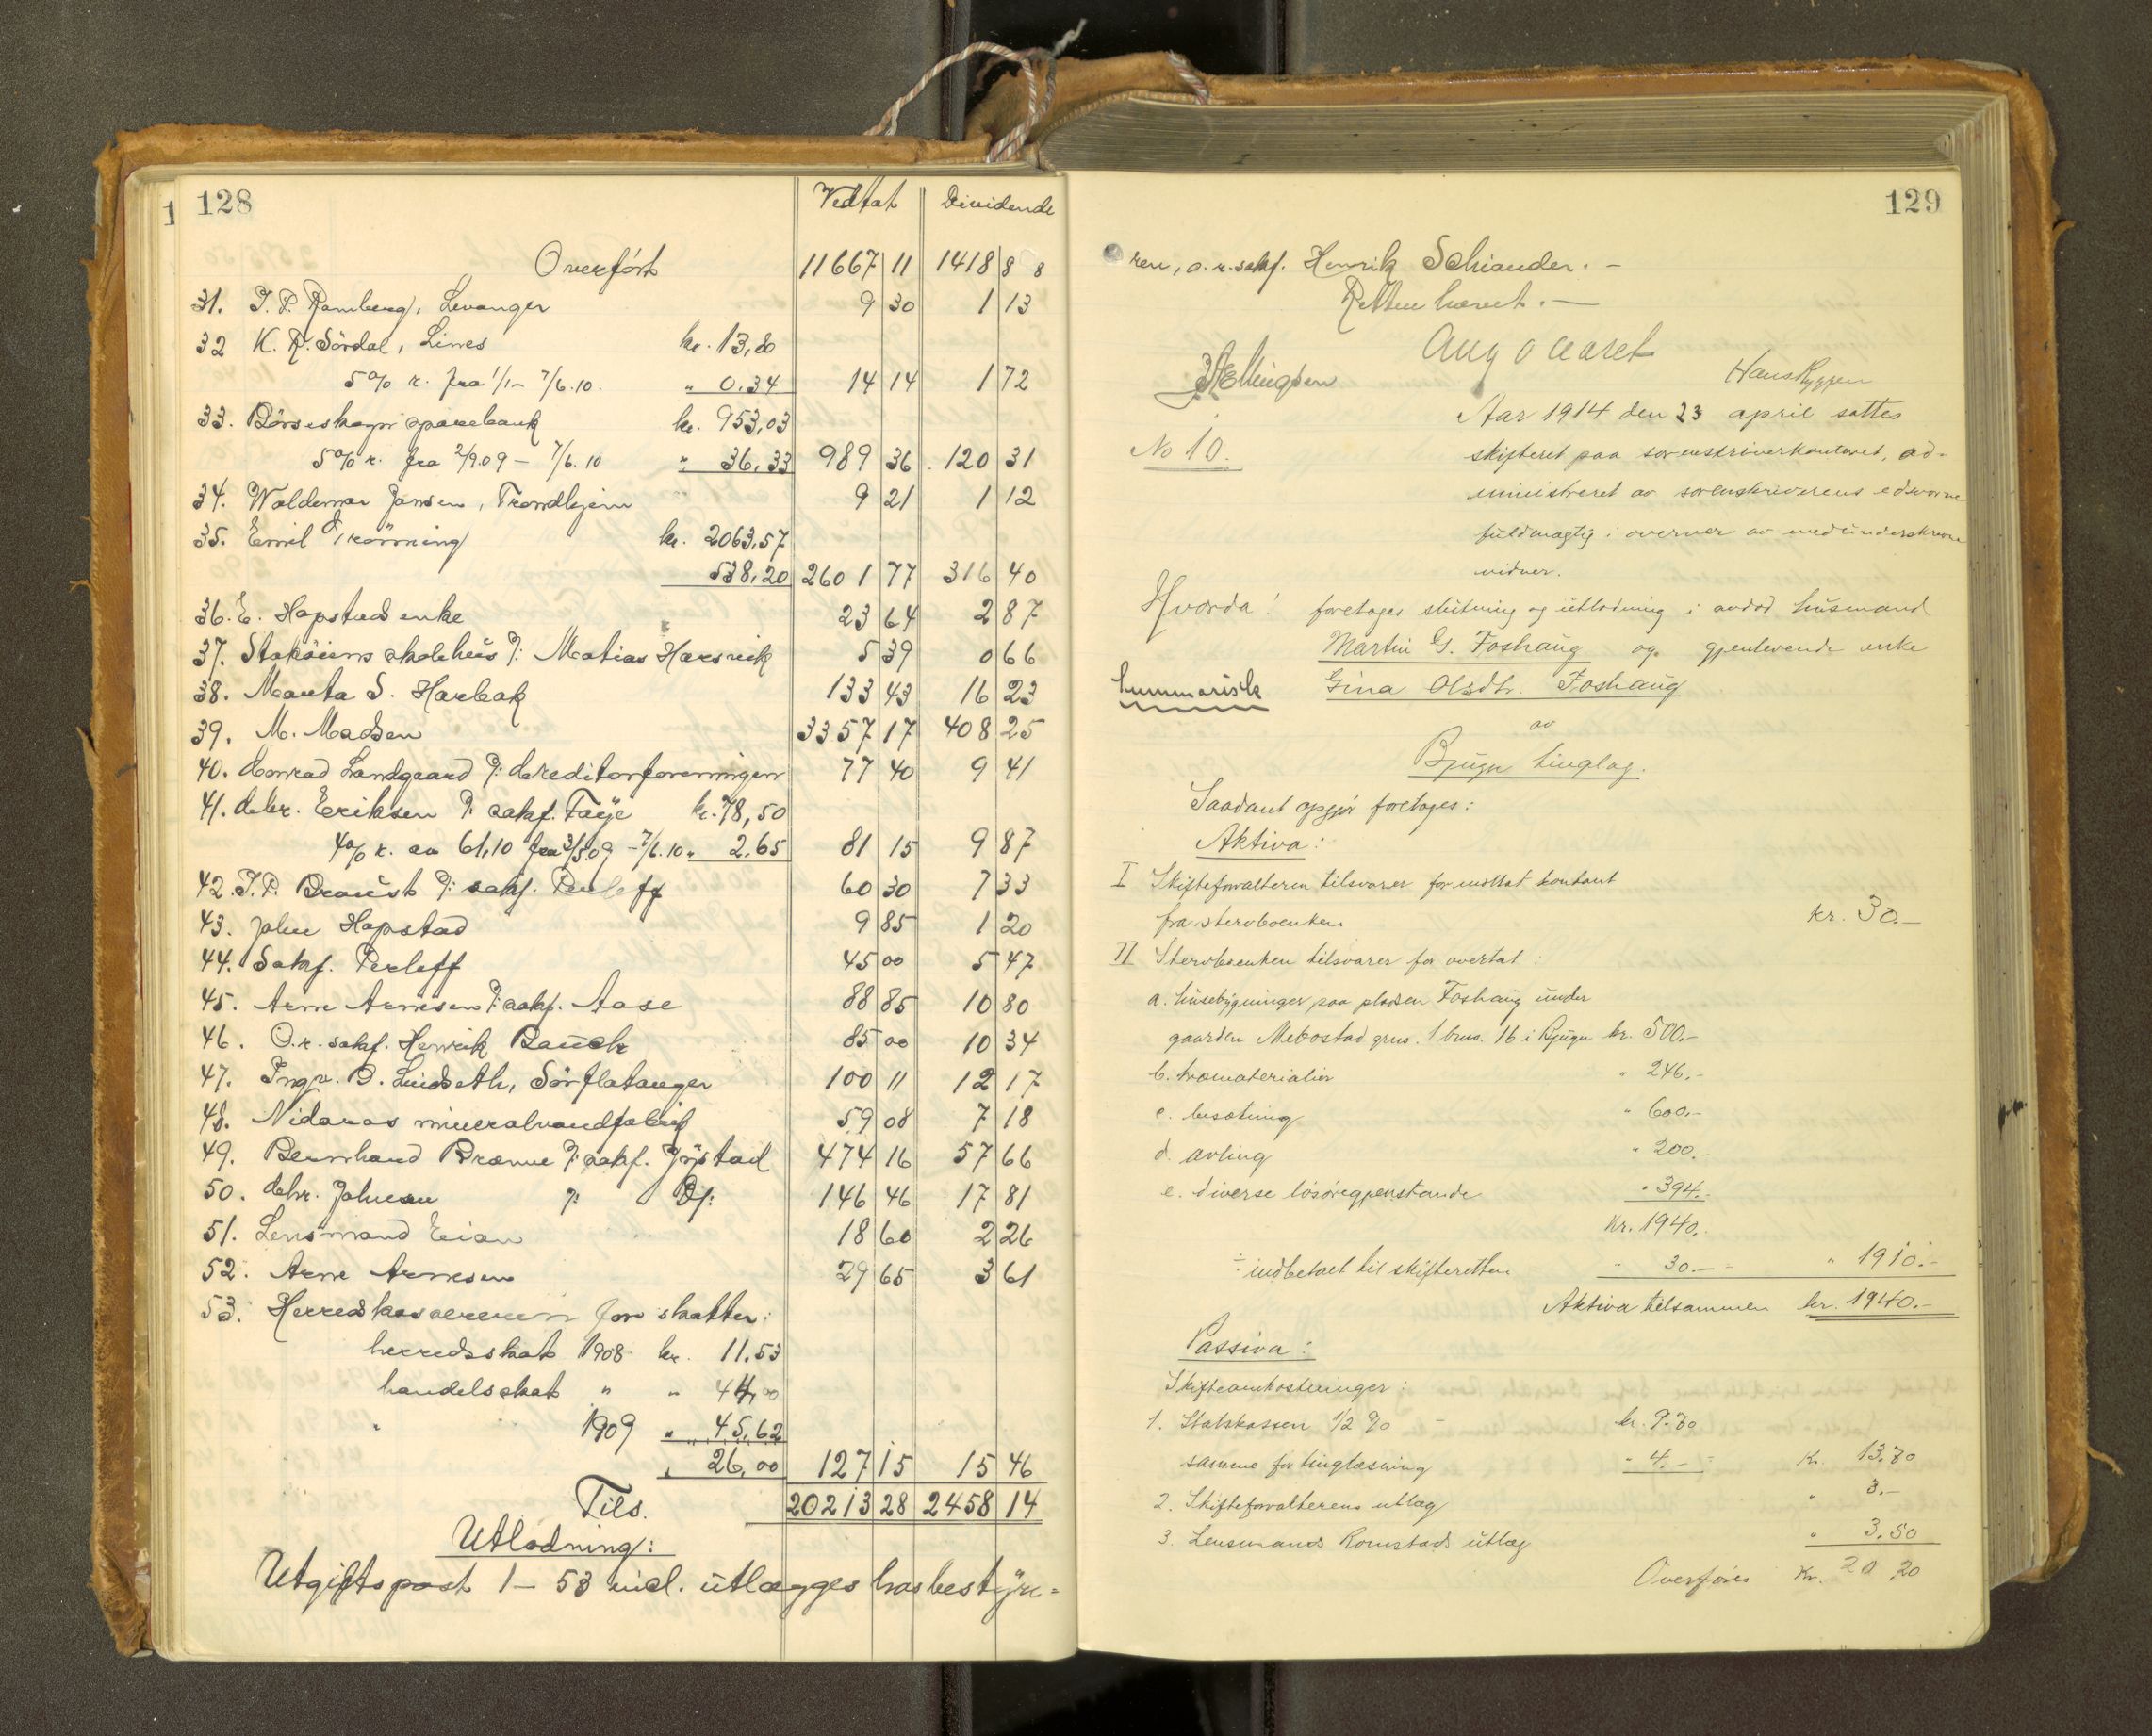 128
Vedtat Dividende
Overført 11667 11 1418 8 8
31. J. P. Ramberg, Levanger 9 30 1 13
32 K. R. Sördal, Lines kr. 13,80
5 % r. fra 1/1 - 7/6.10. " 0.34 14 14 1 72
33. Börseskogn sparebank kr. 953,03
5% r. fra 2/9.09 - 7/6.10 " 36,33 989 36 120 31
34. Waldemar Jansen, Trondhjem 9 21 1 12
35. Emil Trönning kr. 2063,57
538,20 2601 77 316 40
36. E. Hopstads enke 23 64 2 87
37. Stoköiens skolehus v: Matias Harsvik 5 39 0 66
38. Marta S. Harbak 133 43 16 23
39. M. Madsen 3357 17 408 25
40. Konrad Landgraard v: kreditorforeningen 77 40 9 41
41. Chr. Eriksen v: sakf. Faye kr. 78,50
4% r. av 61,10 fra 3/5.09 - 7/6.10 " 2,65 81 15 9 87
42. J. P. Braust v: sakf. Perleff 60 30 7 33
43. John Hopstad 9 85 1 20
44. Sakf. Perleff 45 00 5 47
45. Arne Arnesen v: sakf. Aase 88 85 10 80
46. O.r. sakf. Henrik Bauck 85 00 10 34
47. Ingv. O. Lindseth, Sörflatanger 100 11 12 17
48. Nidaros mineralvandfabrik 59 08 7 18
49. Bernhard Brænne v: sakf. Jystad 474 16 57 66
50. Chr. Johnsen v: Df: 146 46 17 81
51. Lensmand Eian 18 60 2 26
52. Arne Arnesen 29 65 3 61
53. Herredskassereren for skatter:
herredsskat 1908 kr. 11.53
handelsskat " " 44,00
" 1909 " 45,62
" 26,00 127 15 15 46
Tils. 20213 28 2458 14
Utlodning:
Utgiftspost 1 - 53 incl. utlægges hos bestyre=
129
ren, o.r. sakf. Henrik Schiander. -
Retten hævet. -
Ellingsen
Hans Ryggen
No 10.
Aar 1914 den 23 april sattes
skifteret paa sorenskriverkontoret, ad-
ministreret av sorenskriverens edsvorne
fuldmægtig i overvær av medunderskrevne
vidner.
Hvorda! foretoges slutning og utlodning i avdød husmand
Martin G. Foshaug og gjenlevende enke
Summarisk Gina Olsdtr. Foshaug
av
Bjugn tinglag.
Saadant opgjør foretoges:
Aktiva:
I Skifteforvalteren tilsvarer for mottat kontant
fra stervboenken kr. 30.-
II Stervboenken tilsvarer for overtat:
a. husebygninger paa pladsen Foshaug under
gaarden Mebostad grno. 1 brno. 16 i Bjugn kr. 500.-
b. træmaterialier " 246.-
c. besætning " 600.-
d. avling " 200.-
e. diverse løsøregjenstande " 394.-
Kr. 1940.
÷ indbetalt til skifteretten " 30.- " 1910.-
Aktiva tilsammen kr. 1940.-
Passiva:
Skifteomkostninger:
1. Statskassen 1/2 % - kr. 9.70
samme for tinglæsning " 4.- Kr. 13,70
2. Skifteforvalterens utlæg " 3.-
3. Lensmand Romstads utlæg " 3.50
Overføres Kr. 20 20